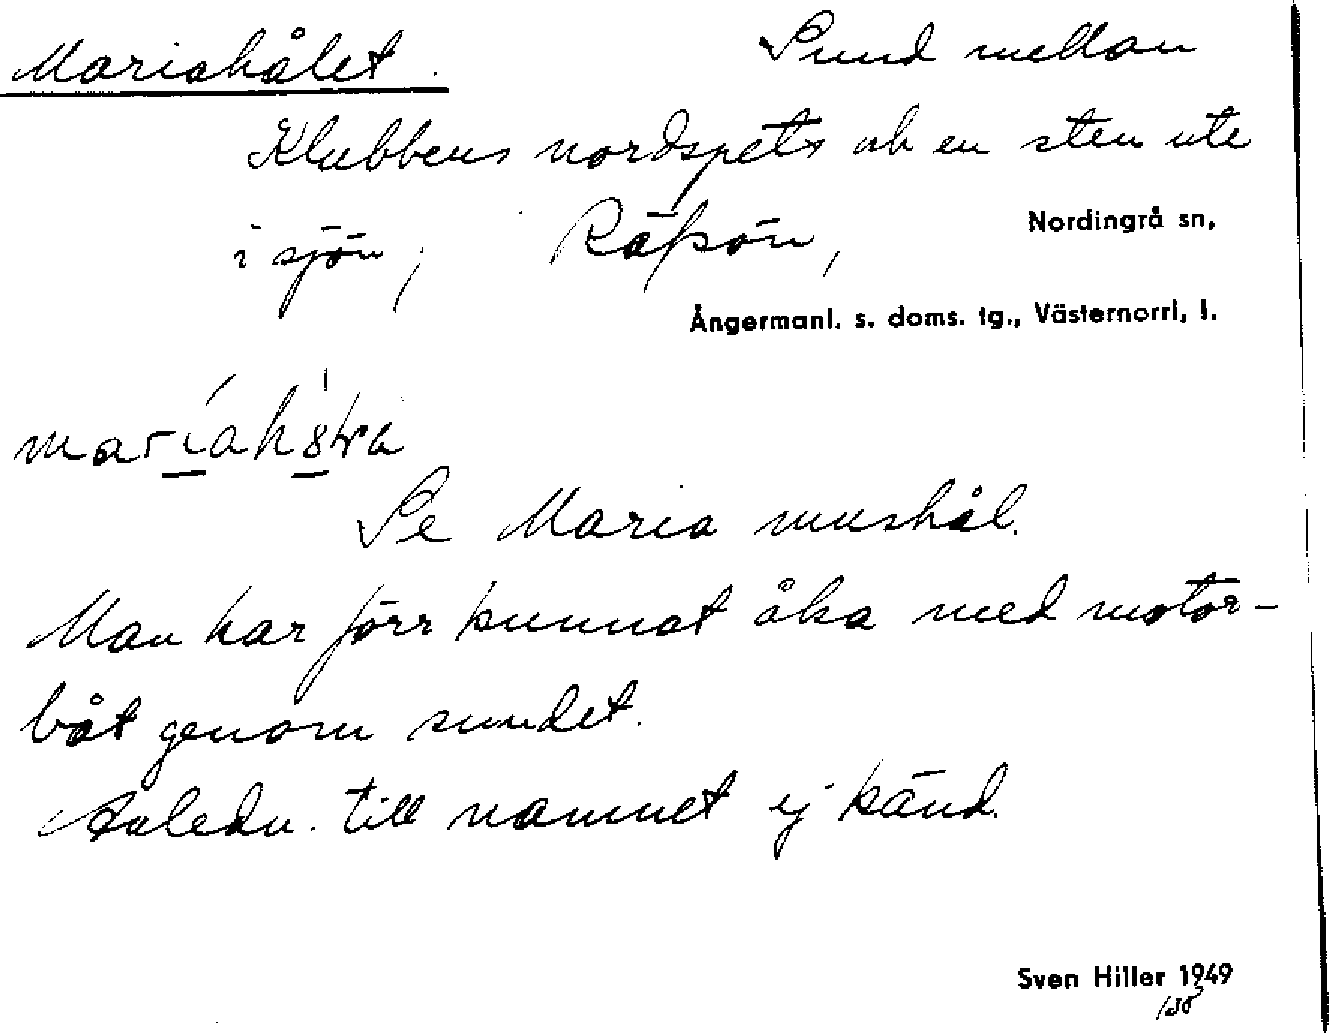 Mariahålet. Sund mellan
Klubbens nordspets och en sten ute
i sjön, Räfsön, Nordingrå sn,
Ångermanl. s. doms. tg., Västernorrl. l.
Se Maria mushål.
Man har förr kunnat åka med motor-
båt genom sundet.
Anledn. till namnet ej känd.
Sven Hiller 1949